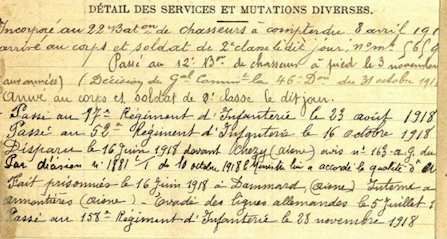 DÉTAIL DES SERVICES ET MUTATIONS DIVERSES.
Incorporé au 22e Baton de chasseurs à compter du 8 avril 191
arrivé au corps et soldat de 2e classe le dit jour, n° mle 5650
Passé au 12e Bon de chasseurs à pied le 3 novembre
(Décision du Gal Commt la 46e Don du 31 octobre 191
Arrivé au corps et soldat de 2e classe le dit jour.
Passé au 97e Régiment d'Infanterie le 23 août 1918
Passé au 52e Régiment d'Infanterie le 16 Octobre 1918
Disparu le 16 Juin 1918 devant Chézy (Aisne) avis n° 163-a. G. du
Par décision n° 1881 du 10 octobre 1918 le Ministre lui a accordé la qualité d'
Fait prisonnier le 16 Juin 1918 à Dammard (Aisne) Interné à
Armentières (Aisne) - Evadé des lignes allemandes le 5 Juillet 1
Passé au 158e Régiment d'Infanterie le 28 novembre 1918